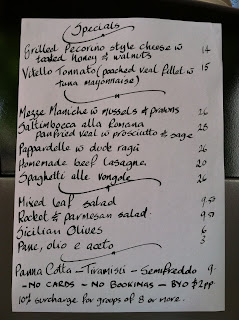 Specials
Grilled Pecorino style cheese w 14
honey & walnuts
Vitello Tonnato (poached veal fillet w 15
tuna mayonnaise)
Mezze Maniche w mussels & prawns 26
Saltimbocca alla Romana 25
panfried veal w prosciutto & sage
Pappardelle w duck ragú 26
Homemade beef lasagne 20
Spaghetti alle vongole 26
Mixed leaf salad 9.50
Rocket & parmesan salad 9.50
Sicilian Olives 6
Pane, olio e aceto 3
Panna Cotta – Tiramisú – Semifreddo 9.
– NO CARDS – NO BOOKINGS – BYO $2pp
10% surcharge for groups of 8 or more.